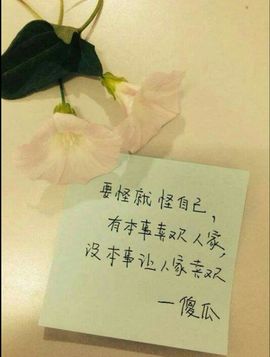 要怪就怪自己，
有本事喜欢人家，
没本事让人家喜欢
一傻瓜